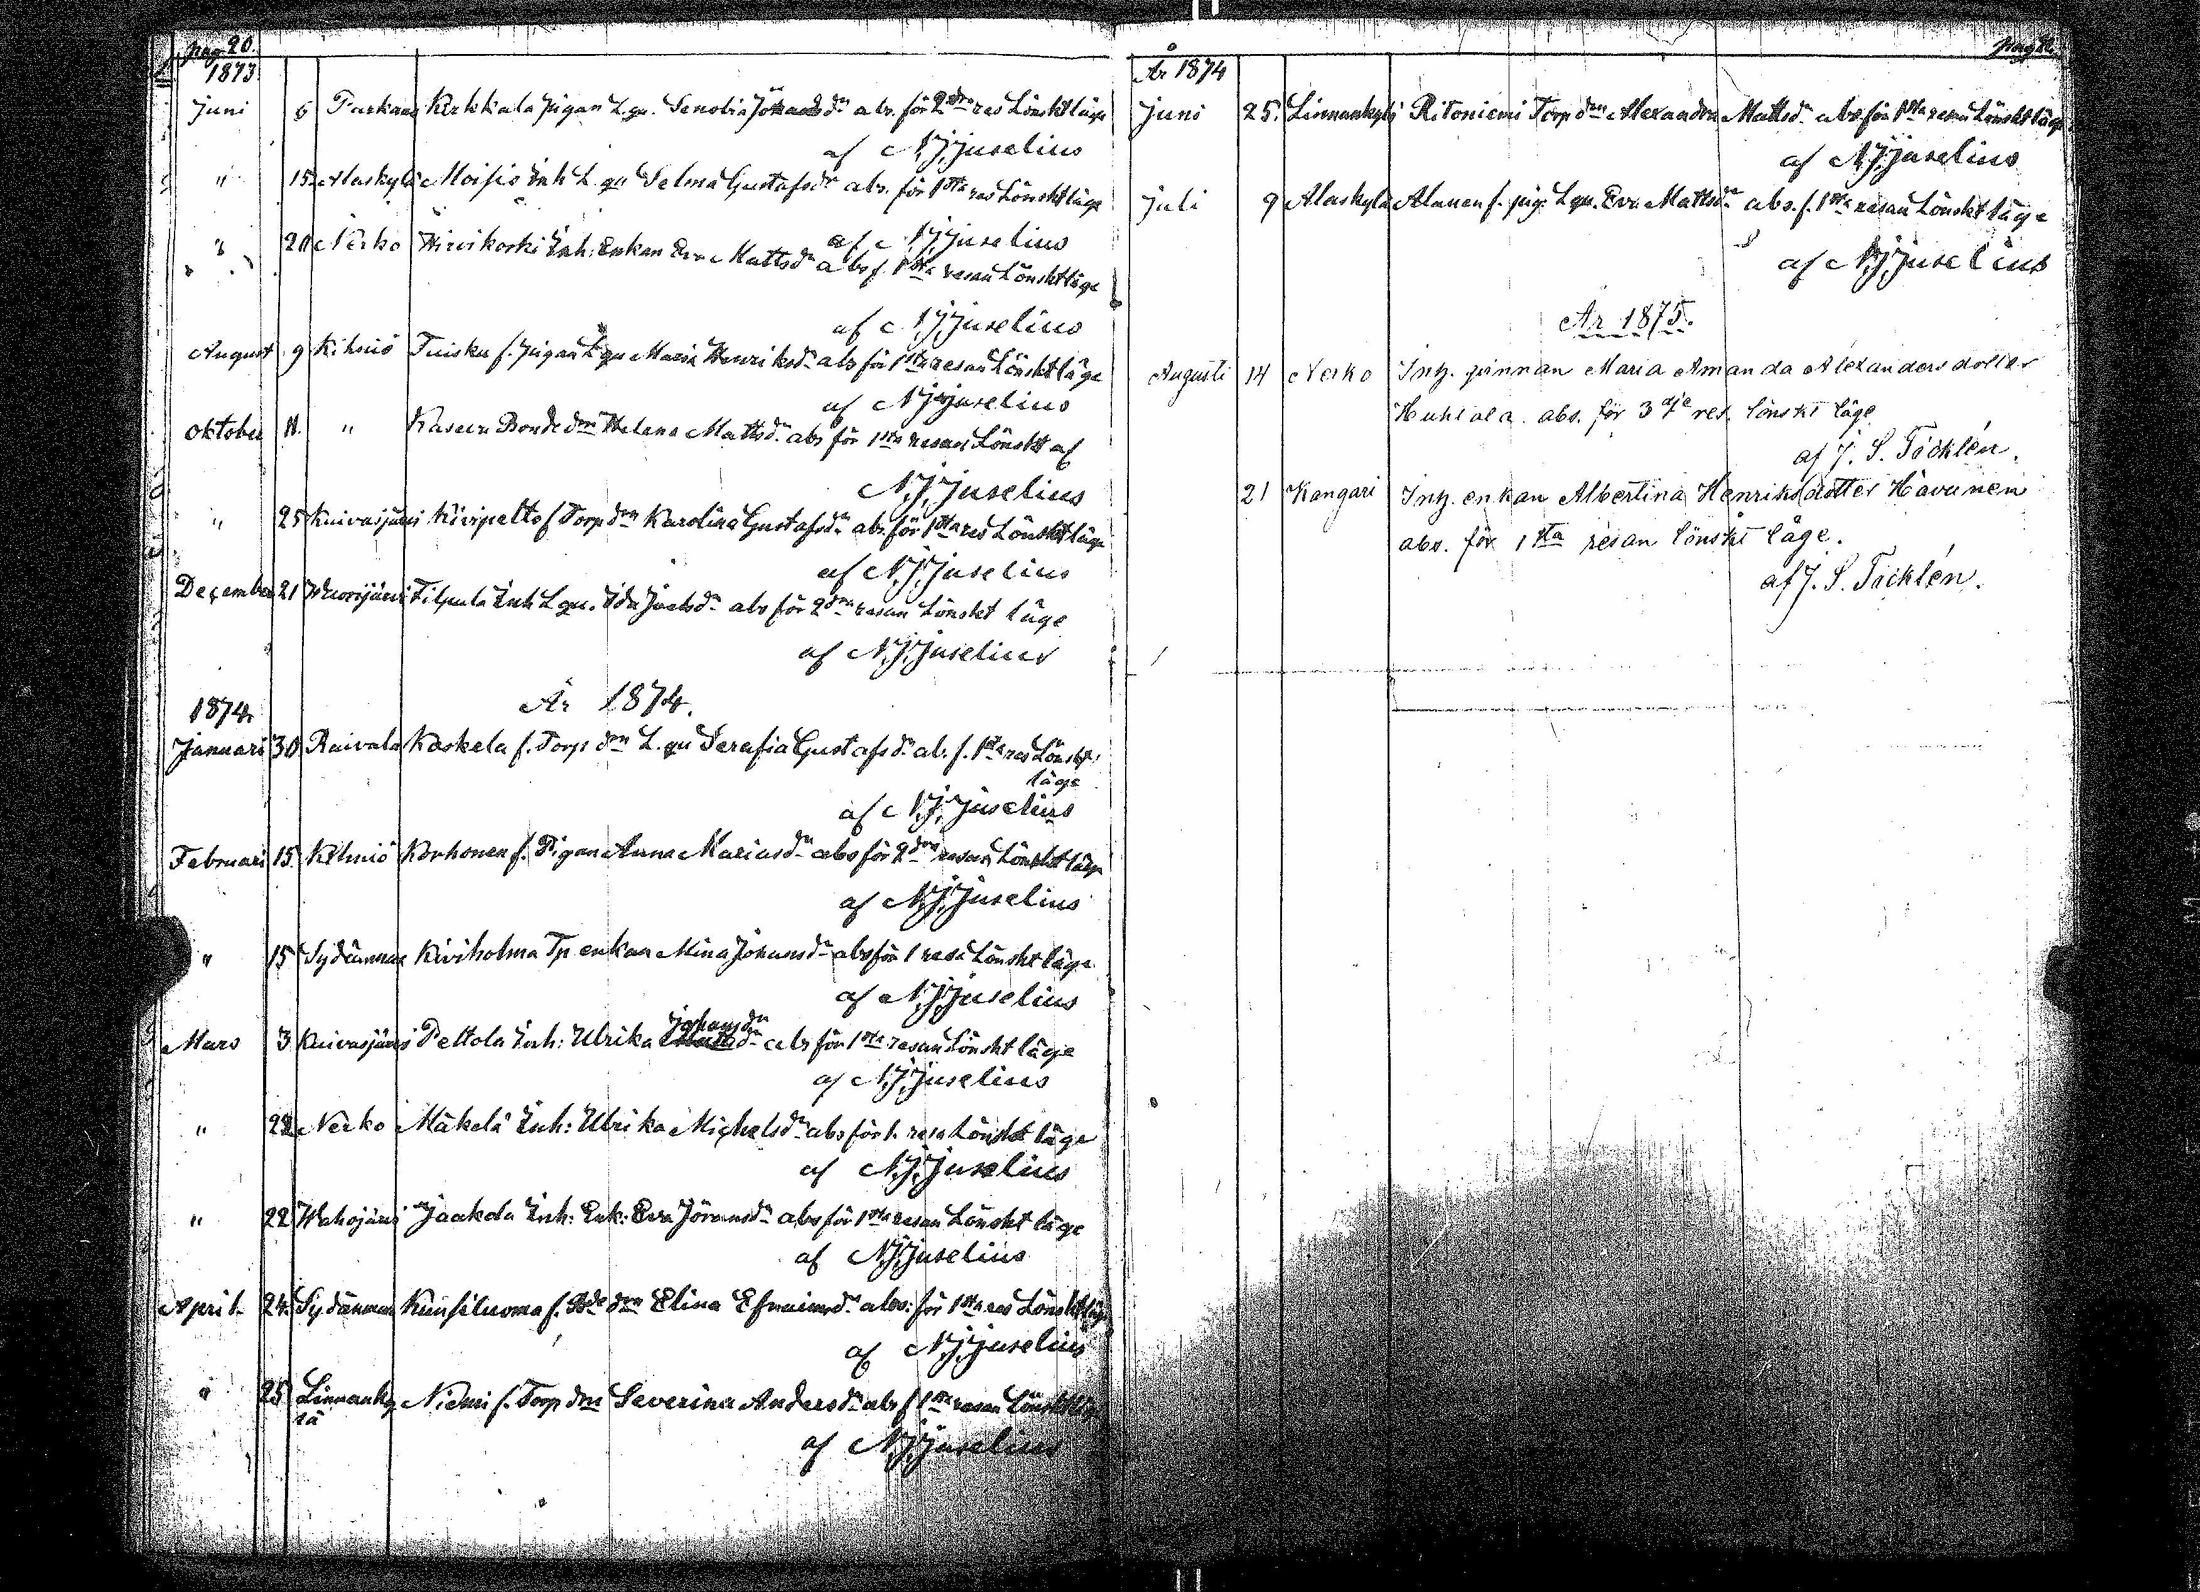 pag 20.
1873
Juni 6 Parkano Kirkkala pigan L.qv. Senobia Johansdr abs. för 2dra res Lönskt läge
af N.J. Juselius
" 15 Alaskylä Moisio Inh L. qv Selma Gustafsdr abs. för 1sta res Lönskt läge
af N.J. Juselius
" 20 Nerko Hirvikoski Inh: Enkan Eva Mattsdr abs f. 1sta resan Lönskt läge
af N.J. Juselius
August 9 Kihniö Tuisku f. pigan L.qv Maria Henriksdr abs för 1sta resan Lönskt läge
af N.J. Juselius
Oktober 11. " Bonde dm Helena Mattsdr abs för 1sta resan Lönskt af
N.J. Juselius
" 25 Kuivasjärvi Kivipelto f Torp dm Karolina Gustafsdr abs. för 1sta res Lönskt läge
af N.J. Juselius
December 21 Wuorijärvi Filpula Inh L.qv. Ida Joelsdr abs för 2dra resan Lönskt läge
af N.J. Juselius
År 1874.
1874.
Januari 30. Raivala Koskela f. Torp dm L. qv Serafia Gustafsdr. ab. f. 1sta res Lönskt
läge
af N.J. Juselius
Februari 15. Kihniö Korhonen f. Pigan Anna Mariasdr abs för 2dra resan Lönskt läge
af N.J. Juselius
" 15 Sydänmaa Kiviholma Tp enkan Mina Johansdr abs för 1 resa Lönskt läge
af N.J. Juselius
Mars 3 Kuivasjärvi Peltola Inh: Ulrika Johansdr abs för 1sta resan Lönskt läge
af N.J. Juselius
" 22 Nerko Mäkelä Inh: Ulrika Michelsdr abs för 1. resa Lönskt läge
af N.J. Juselius
" 22 Wahojärvi Jaakola Inh: Enk: Eva Jöransdr abs för 1sta resan Lönskt läge
af N.J. Juselius
April 24. Sydänmaa Kuusiluoma f. Bde dm Elina Efraimsdr abs: för 1sta res Lönskt läge
af N.J. Juselius
" 25 Linnanky Niemi f. Torp dm Severina Andersdr abs f 1sta resan Lönskt läge
lä
af N.J. Juselius
År 1874
Juni 25. Linnankylä Ritoniemi Torp dm Alexandra Mattsdr abs för 1sta resan Lönskt läge
af N.J. Juselius
Juli 9 Alaskylä Alanen f. pig: L qv. Eva Mattsdr abs. f. 1sta resan Lönskt läge
af N.J. Juselius
År 1875.
Augusti 14 Nerko Inh. pinnan Maria Amanda Alexandersdotter
Huhtala. abs. för 3dje res. lönskt läge
af J. S. Täcklén.
21 Kangari Inh. enkan Albertina Henriksdotter Havunen
abs. för 1sta resan lönskt läge.
af J. S. Täcklén.